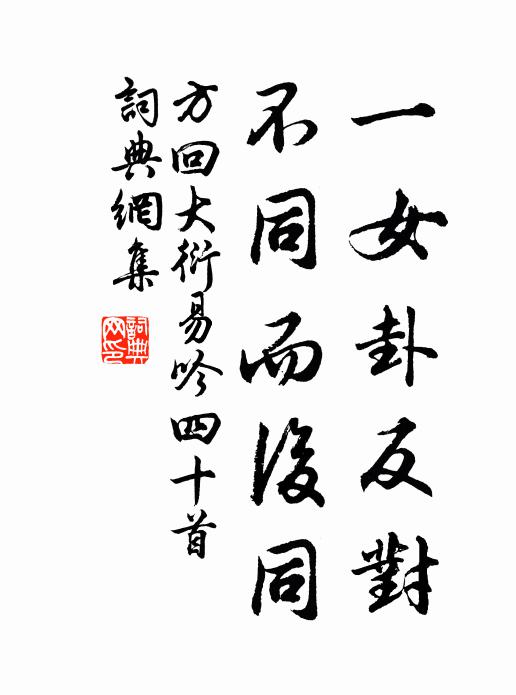 一女卦反對
不同而後同
方回大衍易吟四十首
詞典網集
詞典網印